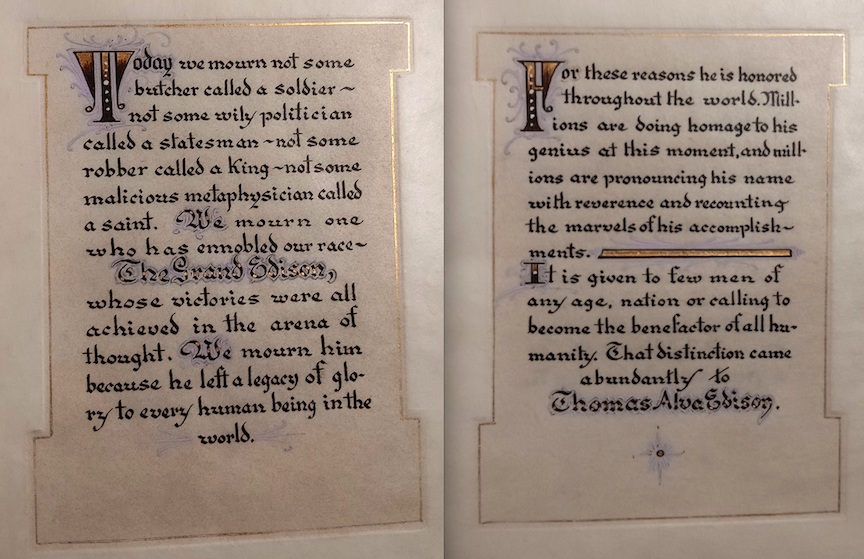 Today we mourn not some
butcher called a soldier ~
not some wily politician
called a statesman ~ not some
robber called a King ~ not some
malicious metaphysician called
a saint. We mourn one
who has ennobled our race ~
The Grand Edison,
whose victories were all
achieved in the arena of
thought. We mourn him
because he left a legacy of glo-
ry to every human being in the
world.
For these reasons he is honored
throughout the world. Mill-
ions are doing homage to his
genius at this moment, and mill-
ions are pronouncing his name
with reverence and recounting
the marvels of his accomplish-
ments.
It is given to few men of
any age, nation or calling to
become the benefactor of all hu-
manity. That distinction came
abundantly to
Thomas Alva Edison.